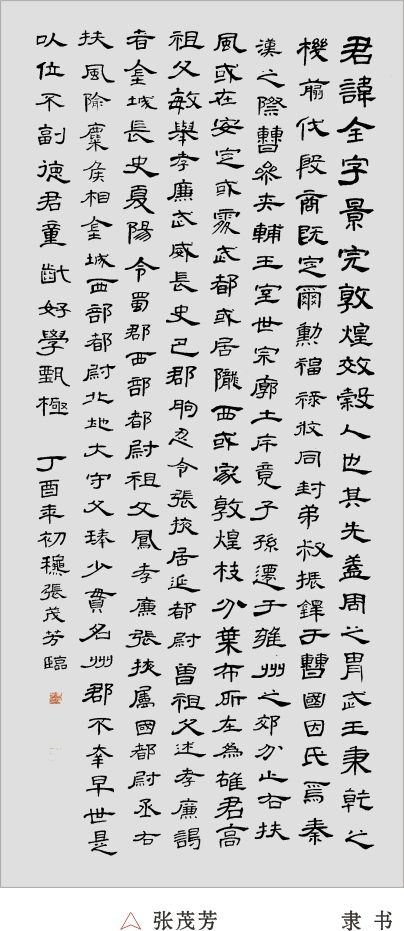 君諱全字景完敦煌效穀人也其先蓋周之胄武王秉乾之
機翦伐殷商既定爾勳福祿攸同封弟叔振鐸于曹國因氏焉秦
漢之際曹參夾輔王室世宗廓土斥竟子孫遷于雍州之郊分止右扶
風或在安定或處武都或居隴西或家敦煌枝分葉布所在為雄君高
祖父敏舉孝廉武威長史巴郡朐忍令張掖居延都尉曾祖父述孝廉謁
者金城長史夏陽令蜀郡西部都尉祖父鳳孝廉張掖屬國都尉丞右
扶風隃麋侯相金城西部都尉北地大守父琫少貫名州郡不幸早世是
以位不副德君童齔好學甄極 丁酉年初穐張茂芳臨
张茂芳 隶书